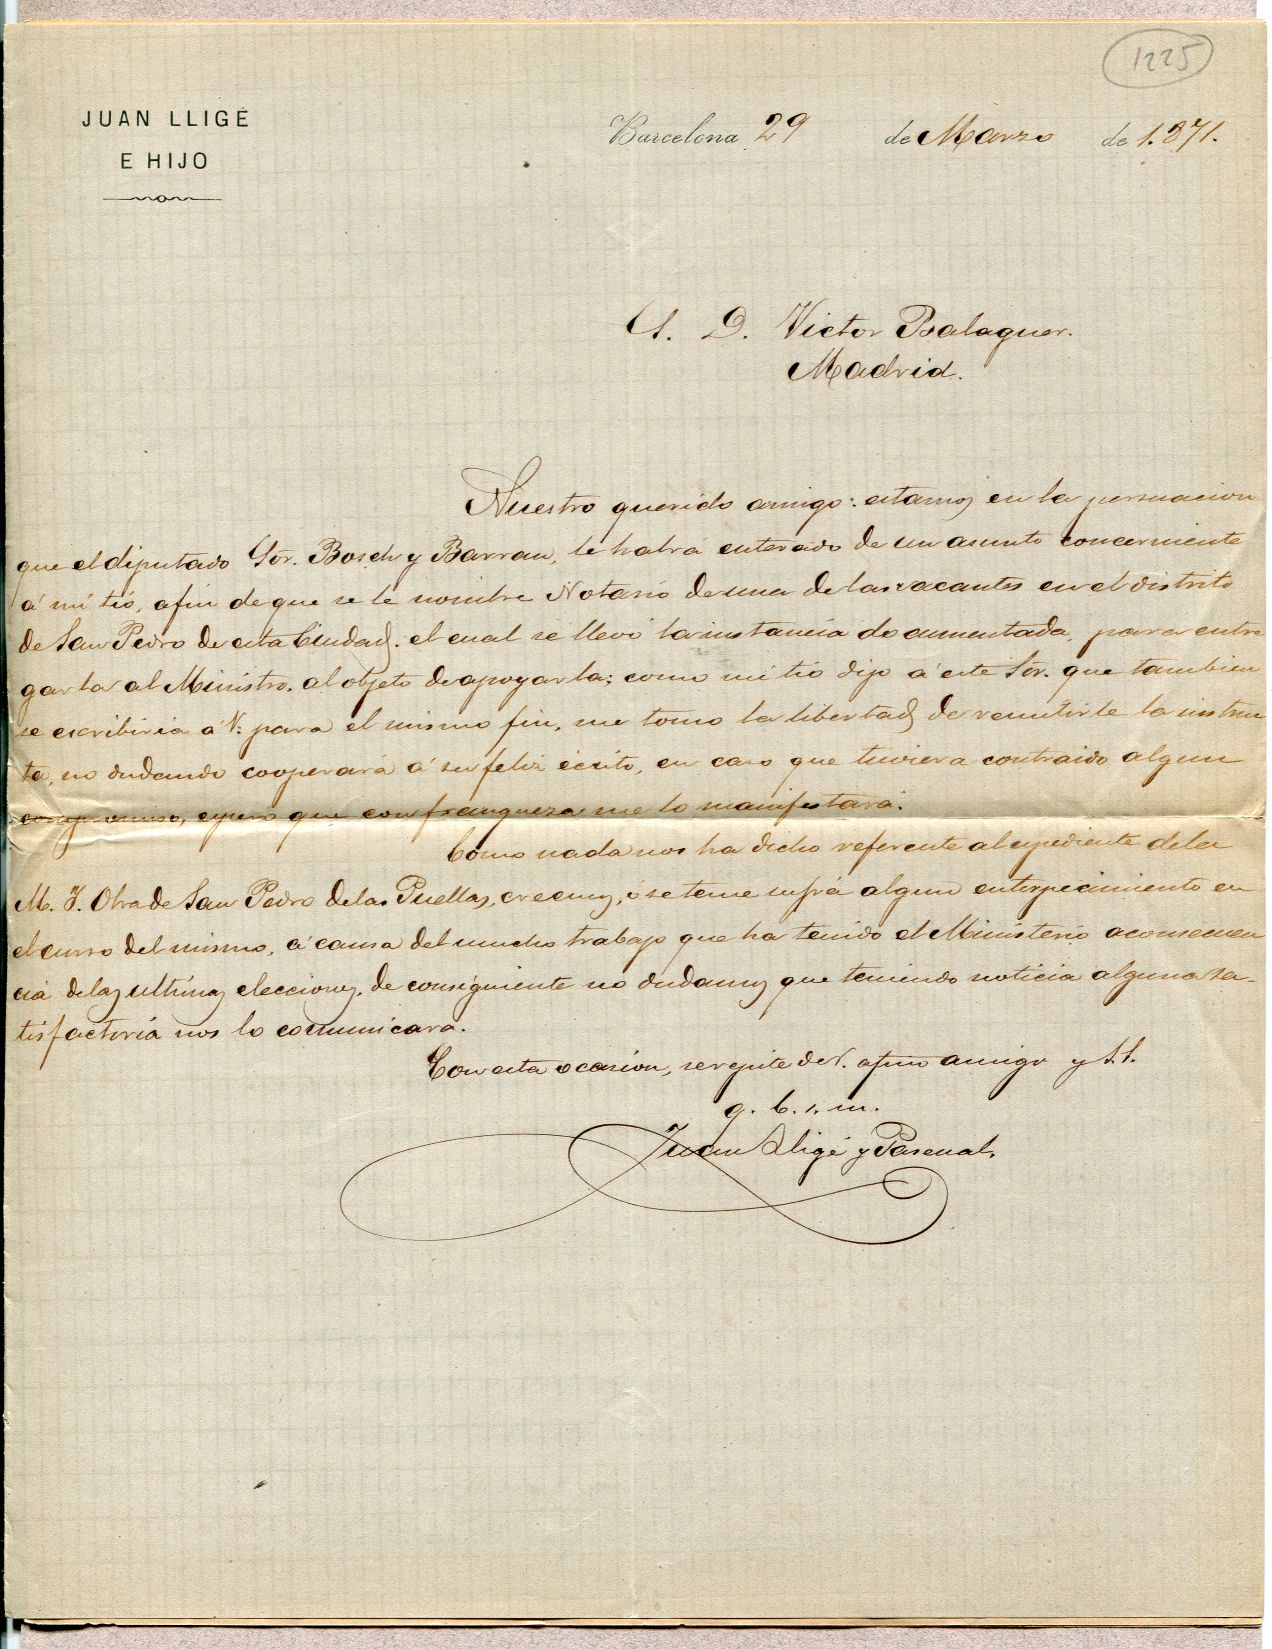 1225
JUAN LLIGÉ
E HIJO
Barcelona 29 de Marzo de 1.871.
S. D. Victor Balaguer.
Madrid.
Nuestro querido amigo: estamos en la persuacion
que el diputado Sor. Bosch y Barrau, le habrá enterado de un asunto concerniente
á mi tio, afin de que se le nombre Notario de una de las vacantes en el distrito
de San Pedro de esta Ciudad. el cual se llevó la instancia documentada, para entre
garla al Ministro. al objeto de apoyarla; como mi tio dijo á este Sor. que tambien
se escribiria á V. para el mismo fin, me tomo la libertad de remitirle la instru
ta, no dudando cooperará á su feliz écsito, en caso que tuviera contraido algun
compromiso, espero que con franqueza me lo manifestará.
Como nada nos ha dicho referente al espediente de la
M. I. Obra de San Pedro de las Puellas, creemos, ó se teme sufra algun entorpecimiento en
el curso del mismo, á causa del mucho trabajo que ha tenido el Ministerio a consecuen
cia de las ultimas elecciones. de consiguiente no dudamos que teniendo noticia alguna sa-
tisfactoria nos lo comunicara.
Con esta ocasion, se repite de V. afmo amigo y S. S.
q. b. s. m.
Juan Lligé y Pascual.